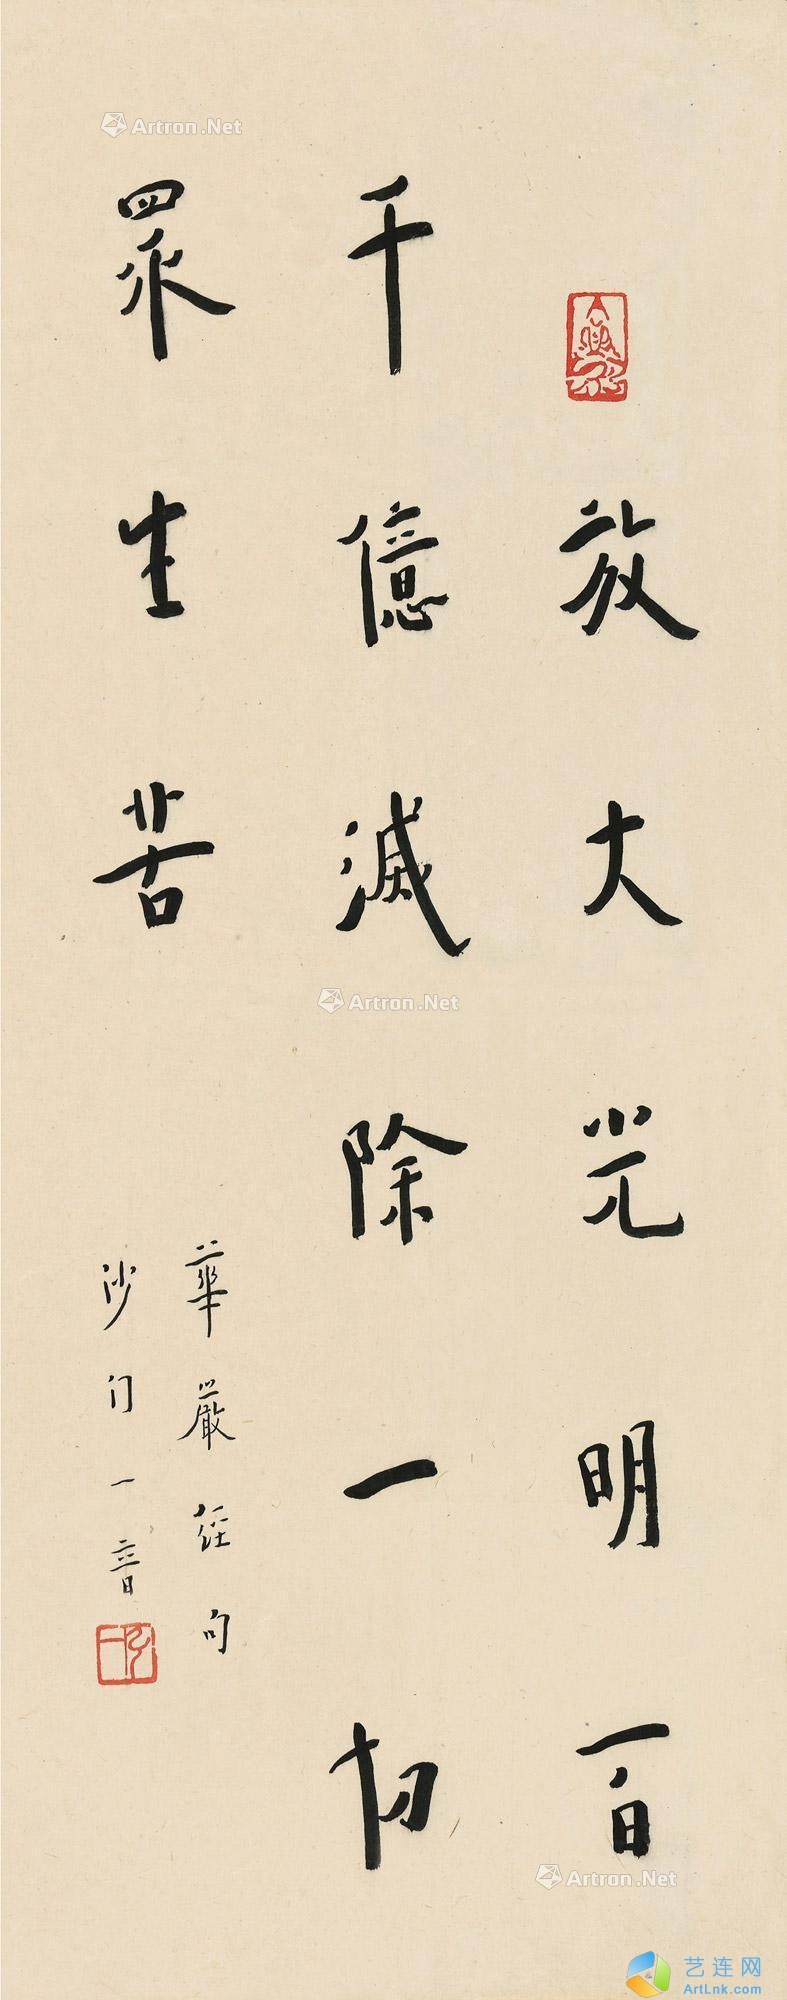 放大光明百
千億滅除一切
眾生苦
華嚴經句
沙门一音
Artron.Net
Artron.Net
Artron.Net
艺连网
ArtLnk.com